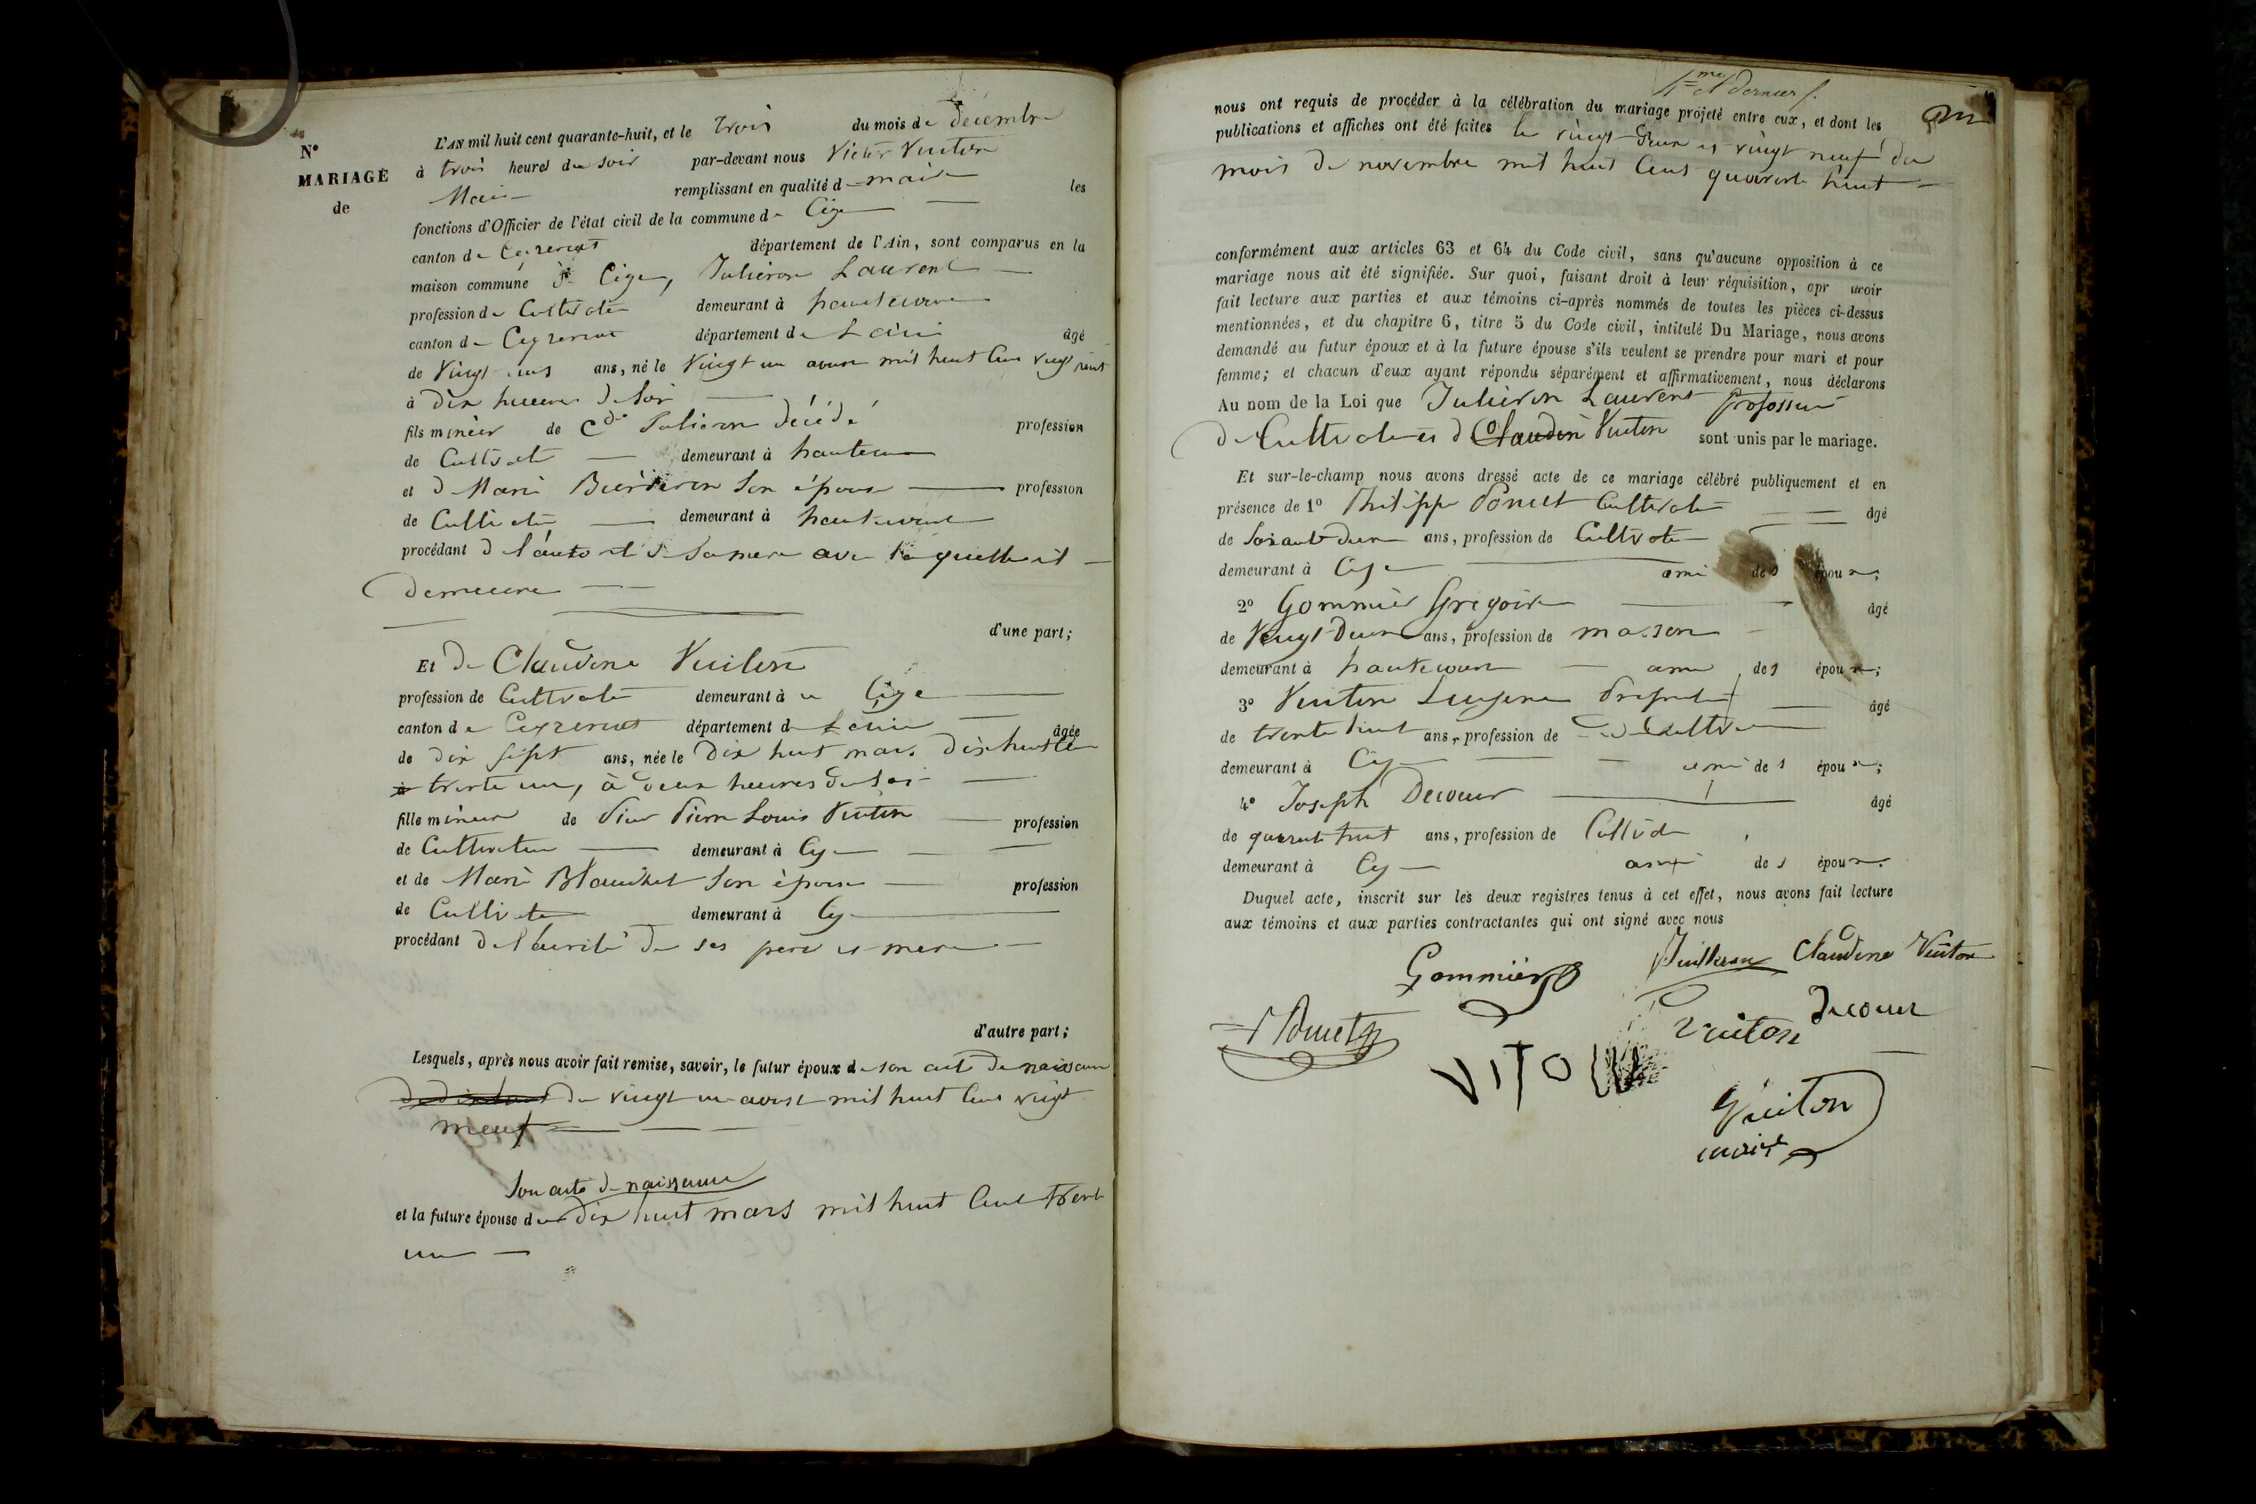 N°
MARIAGE
de
L'AN mil huit cent quarante-huit, et le trois du mois de décembre
à trois heures du soir par-devant nous Victor Vuiton
Maire remplissant en qualité de maire les
fonctions d'Officier de l'état civil de la commune de Cize
canton de Ceyzeriat département de l'Ain, sont comparus en la
maison commune de Cize, Julieron Laurent
profession de Cultivateur demeurant à hautecour
canton de Ceyzeriat département de L'ain âgé
de Vingt ans, né le Vingt un mil huit Cent vingt
à dix heures du Soir
fils mineur de Cde Julieron décédé profession
de Cultivateur demeurant à hautecour
et de Marie son épouse profession
de Cultivateur demeurant à hautecour
procédant de l'autorité de Sa mere avec laquelle il
demeure
d'une part;
Et de Claudine Vuiton
profession de Cultivateur demeurant à Cize
canton de Ceyzeriat département de L'ain âgée
de dix sept ans, née le Dix huit mars Dix huit Cent
trente un, à deux heures du Soir
fille mineure de Pierre Louis Vuiton profession
de Cultivateur demeurant à Cize
et de Marie Blanchet Son épouse profession
de Cultivateur demeurant à Cize
procédant de l'autorité de ses pere et mere
d'autre part;
Lesquels, après nous avoir fait remise, savoir, le futur époux de son acte de naissance
du vingt un mil huit Cent vingt
neuf
Son acte de naissance
et la future épouse du dix huit mars mil huit Cent trente
un
et dernier
nous ont requis de procéder à la célébration du mariage projeté entre eux, et dont les
publications et affiches ont été faites le vingt Deux et vingt neuf du
mois de novembre mil huit Cent quarante huit
conformément aux articles 63 et 64 du Code civil, sans qu'aucune opposition à ce
mariage nous ait été signifiée. Sur quoi, faisant droit à leur réquisition, apr avoir
fait lecture aux parties et aux témoins ci-après nommés de toutes les pièces ci-dessus
mentionnées, et du chapitre 6, titre 5 du Code civil, intitulé Du Mariage, nous avons
demandé au futur époux et à la future épouse s'ils veulent se prendre pour mari et pour
femme; et chacun d'eux ayant répondu séparément et affirmativement, nous déclarons
Au nom de la Loi que Julieron Laurent profession
de Cultivateur et Claudine Vuiton sont unis par le mariage.
Et sur-le-champ nous avons dressé acte de ce mariage célébré publiquement et en
présence de 1° Philippe Poncet Cultivateur âgé
de Soixante Deux ans, profession de Cultivateur
demeurant à Cize ami des époux;
2° Gommier Gregoire âgé
de Vingt Deux ans, profession de masson
demeurant à hautecour ami des époux;
3° Vuiton Eugene âgé
de trente huit ans, profession de Cultiv
demeurant à Cize ami des époux;
4° Joseph Decoeur âgé
de quarante huit ans, profession de Cultiv
demeurant à Cize ami des époux.
Duquel acte, inscrit sur les deux registres tenus à cet effet, nous avons fait lecture
aux témoins et aux parties contractantes qui ont signé avec nous
Gommier Juilleron Claudine Vuiton
Poncet Vuiton Decoeur
VITON
Vuiton
maire